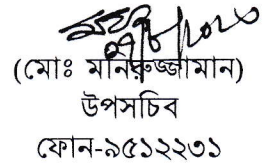 (মোঃ মনিরুজ্জামান)
উপসচিব
ফোন-৯৫১২২৩১